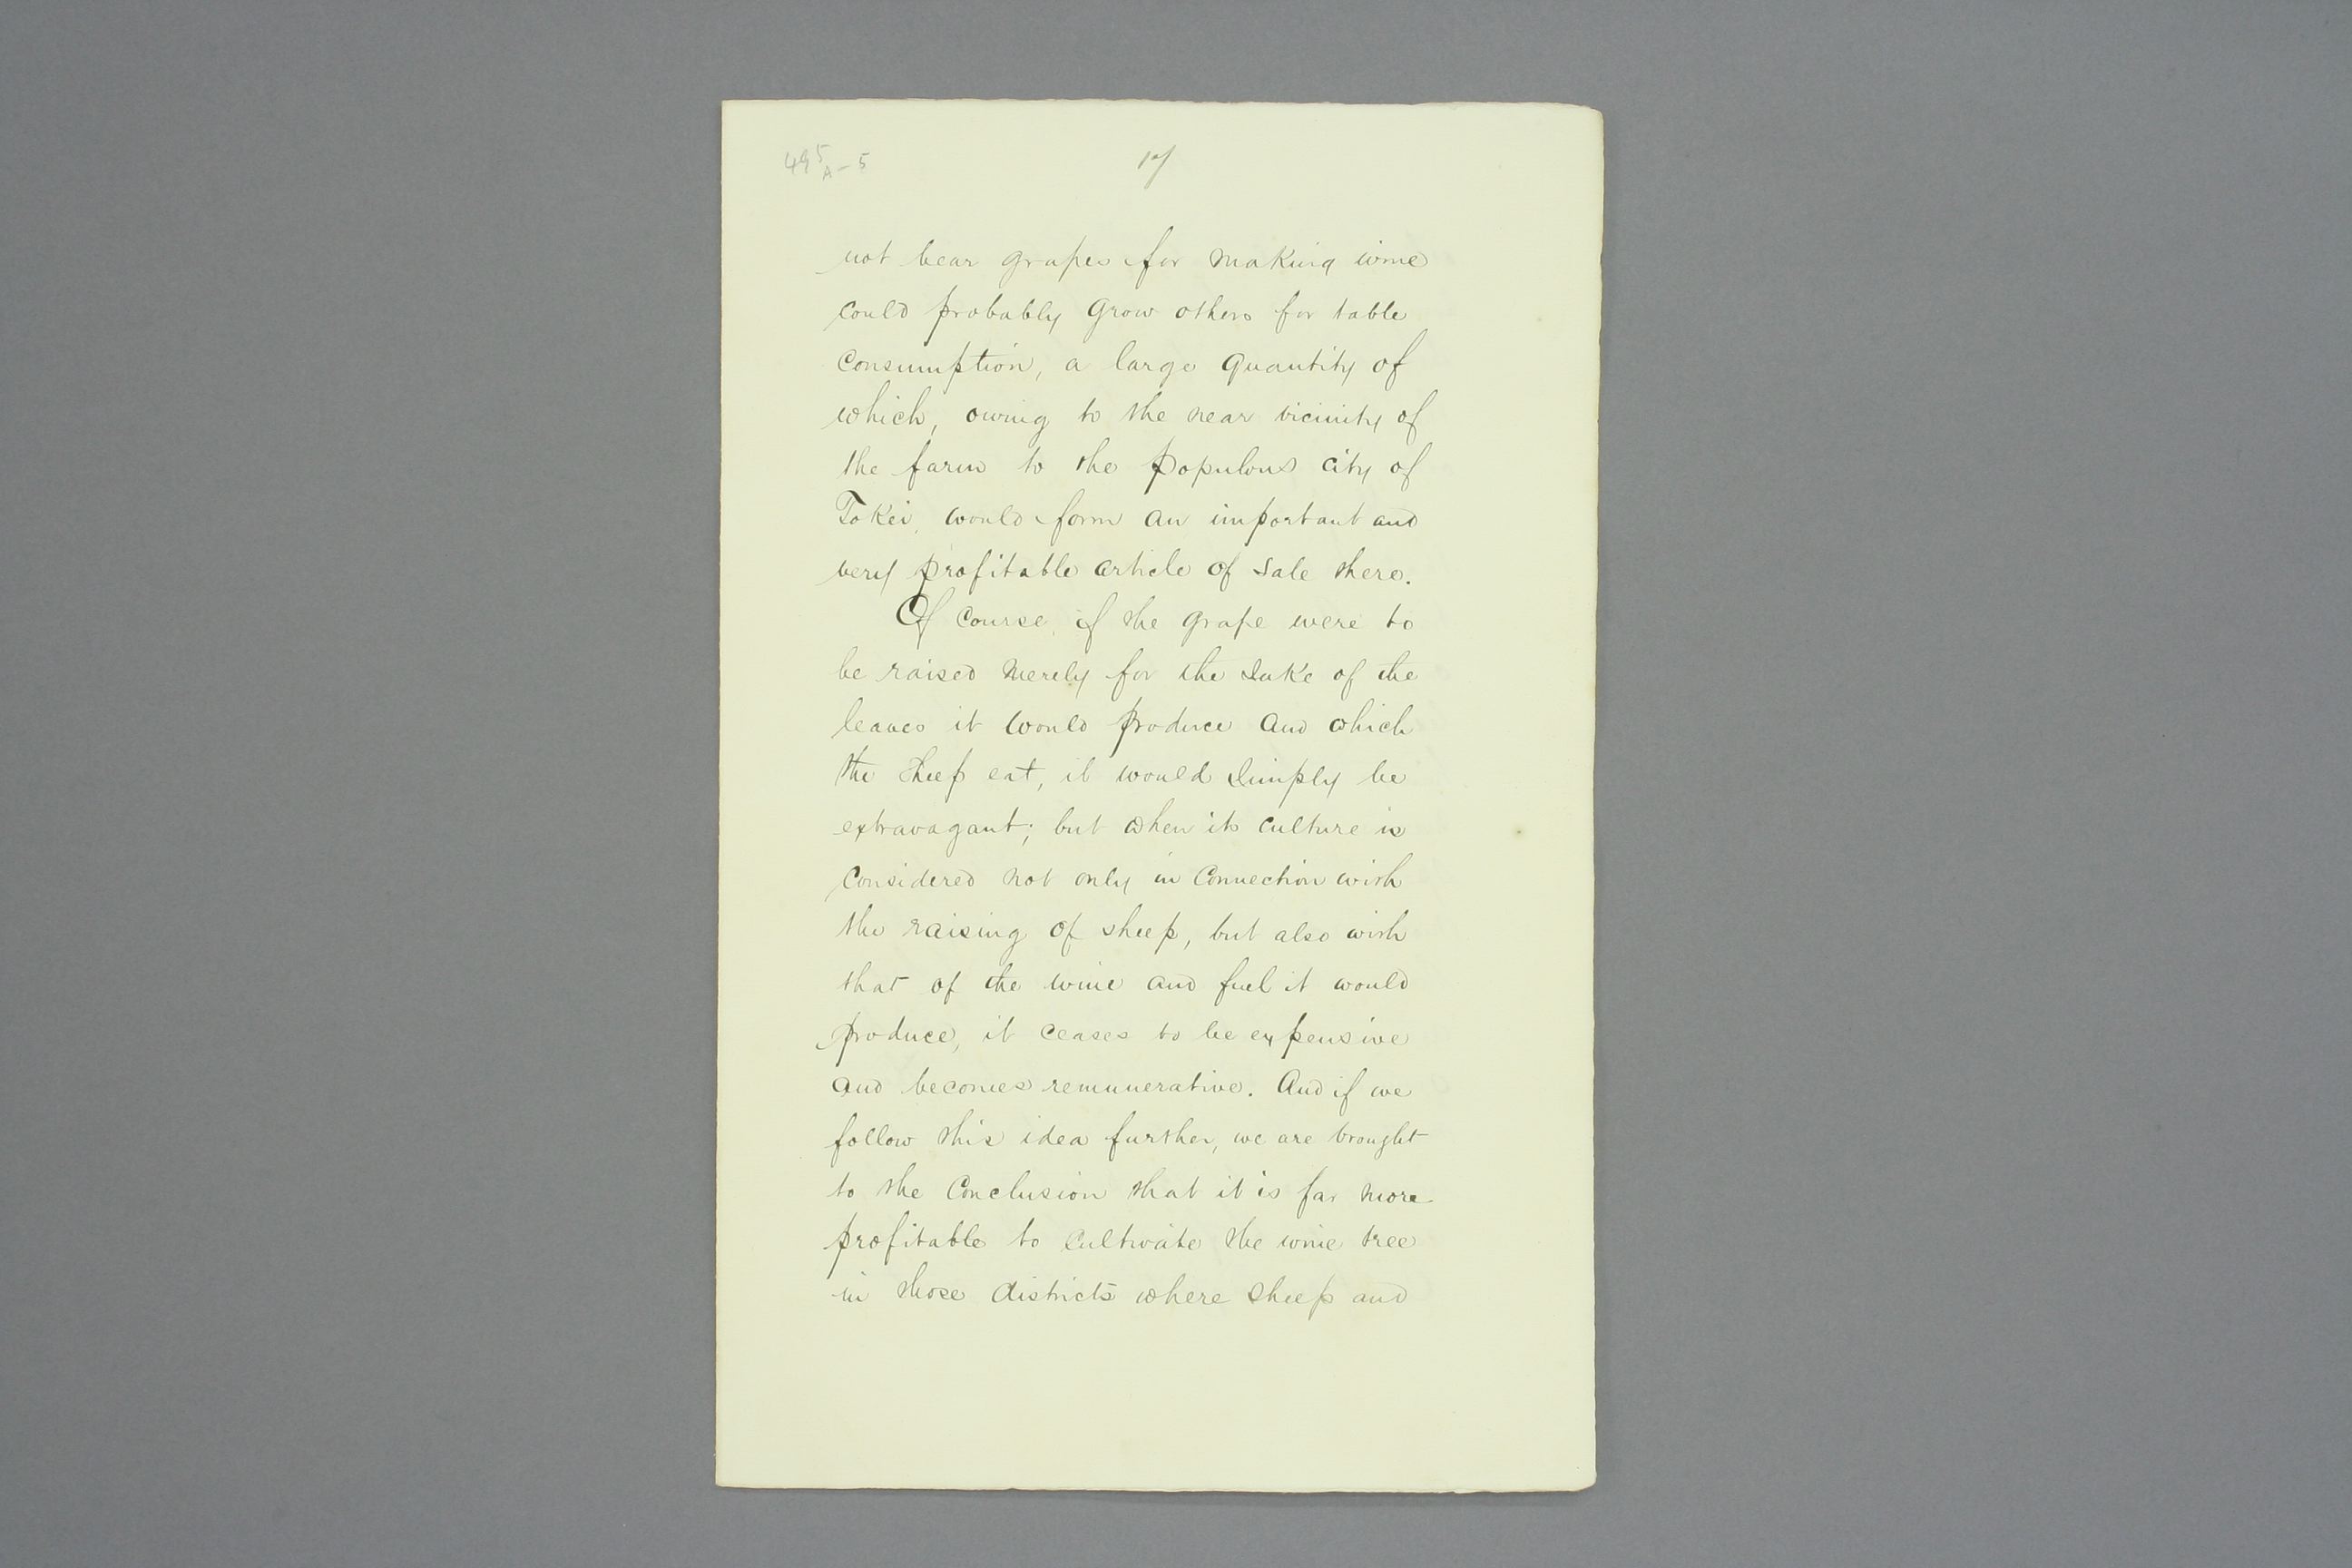 495
A-5
17
not bear grapes for making wine
could probably grow others for table
consumption, a large quantity of
which, owing to the near vicinity of
the farm to the populous city of
Tokei, would form an important and
very profitable article of sale there.
Of course, if the grape were to
be raised merely for the sake of the
leaves it would produce and which
the sheep eat, it would simply be
extravagant; but when its culture is
considered not only in connection with
the raising of sheep, but also with
that of the wine and fuel it would
produce, it ceases to be expensive
and becomes remunerative. And if we
follow this idea further, we are brought
to the conclusion that it is far more
profitable to cultivate the wine tree
in those districts where sheep and